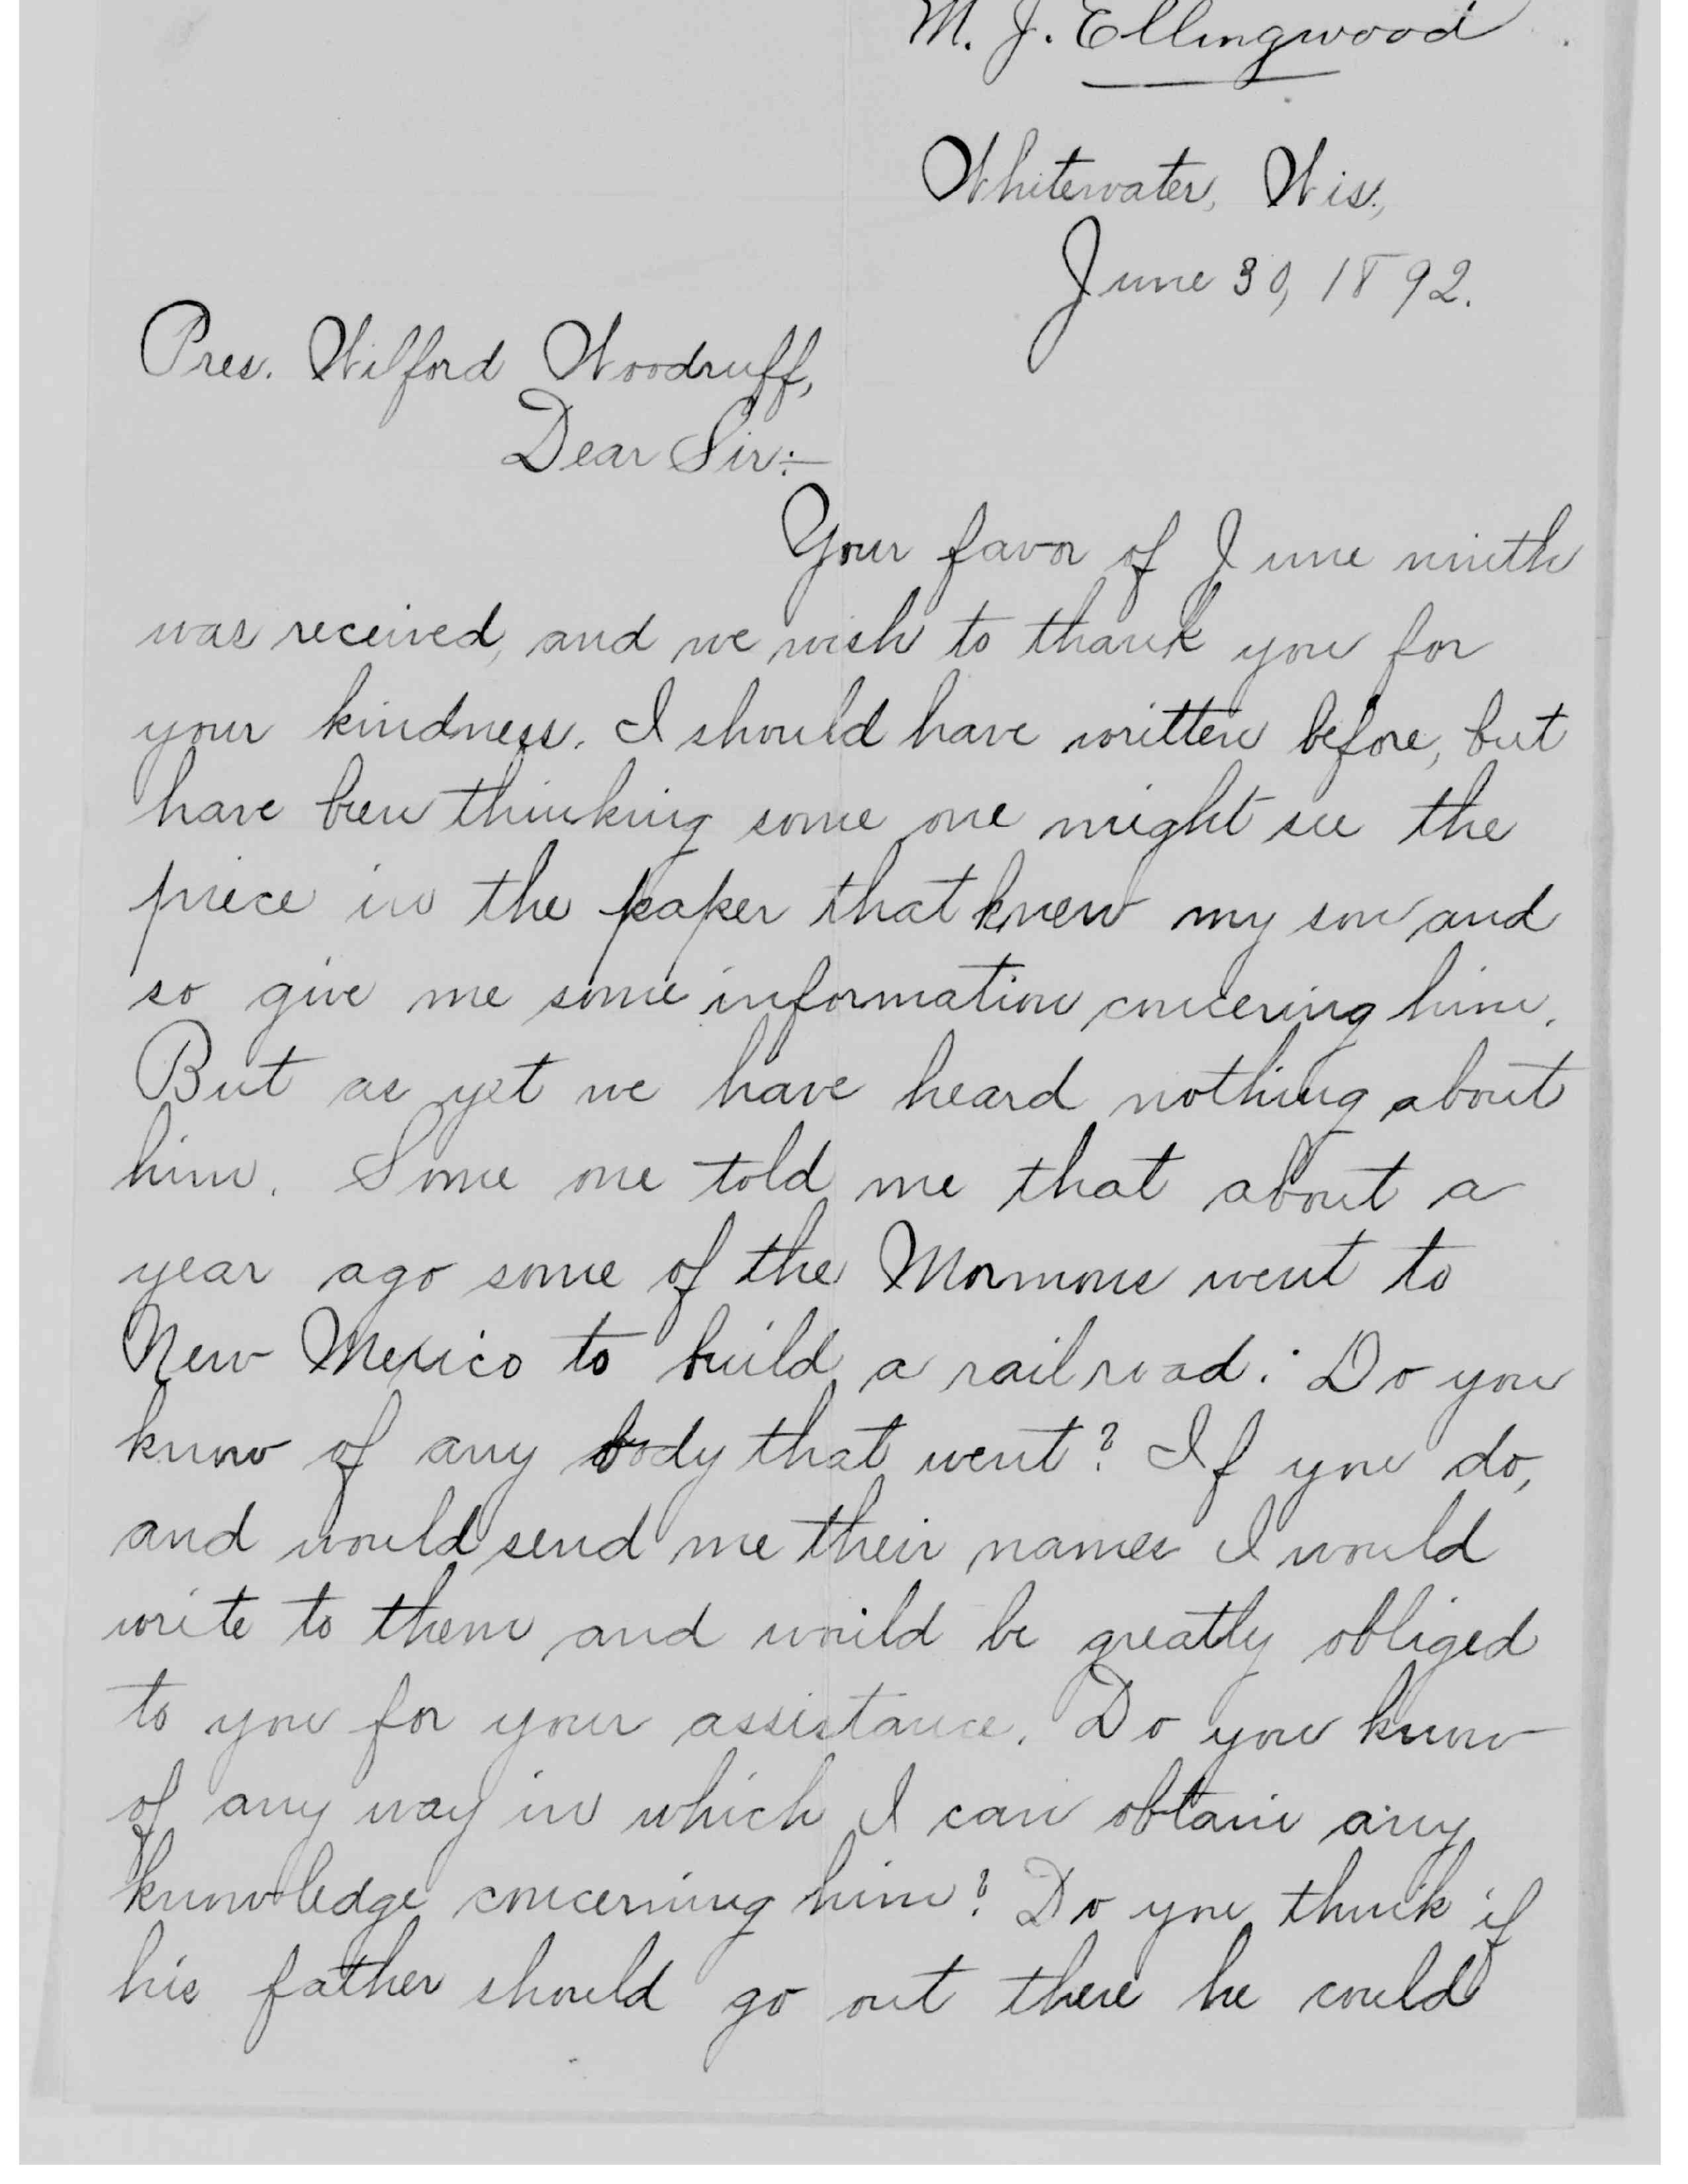 M. J. Ellingwood
Whitewater, Wis.,
June 30, 1892.
Pres. Wilford Woodruff,
Dear Sir:-
Your favor of June ninth
was received, and we wish to thank you for
your kindness. I should have written before, but
have been thinking some one might see the
piece in the paper that knew my son and
so give me some information concering him.
But as yet we have heard nothing about
him. Some one told me that about a
year ago some of the Mormons went to
New Mexico to build a railroad. Do you
know of any body that went? If you do,
and would send me their names I would
write to them and would be greatly obliged
to you for your assistance. Do you know
of any way in which I can obtain any
knowledge concerning him? Do you think if
his father should go out there he could